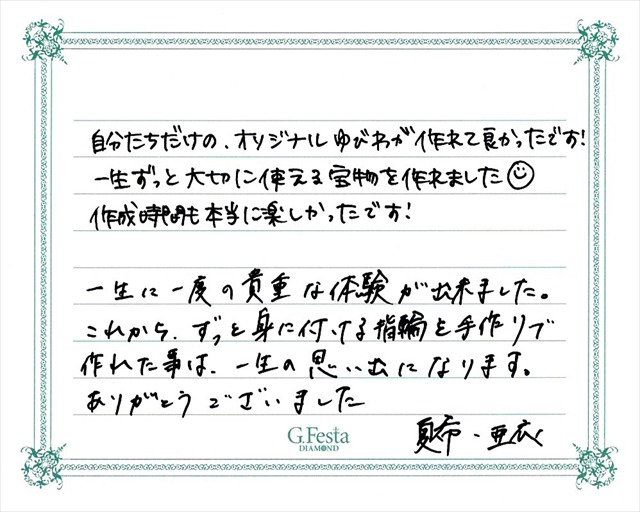 自分たちだけの、オリジナルゆびわが作れて良かったです!
一生ずっと大切に使える宝物を作れました☺
作成時間も本当に楽しかったです!
一生に一度の貴重な体験が出来ました。
これから、ずっと身に付ける指輪を手作りで
作れた事は、一生の思い出になります。
ありがとうございました
G.Festa
DIAMOND
・亜衣